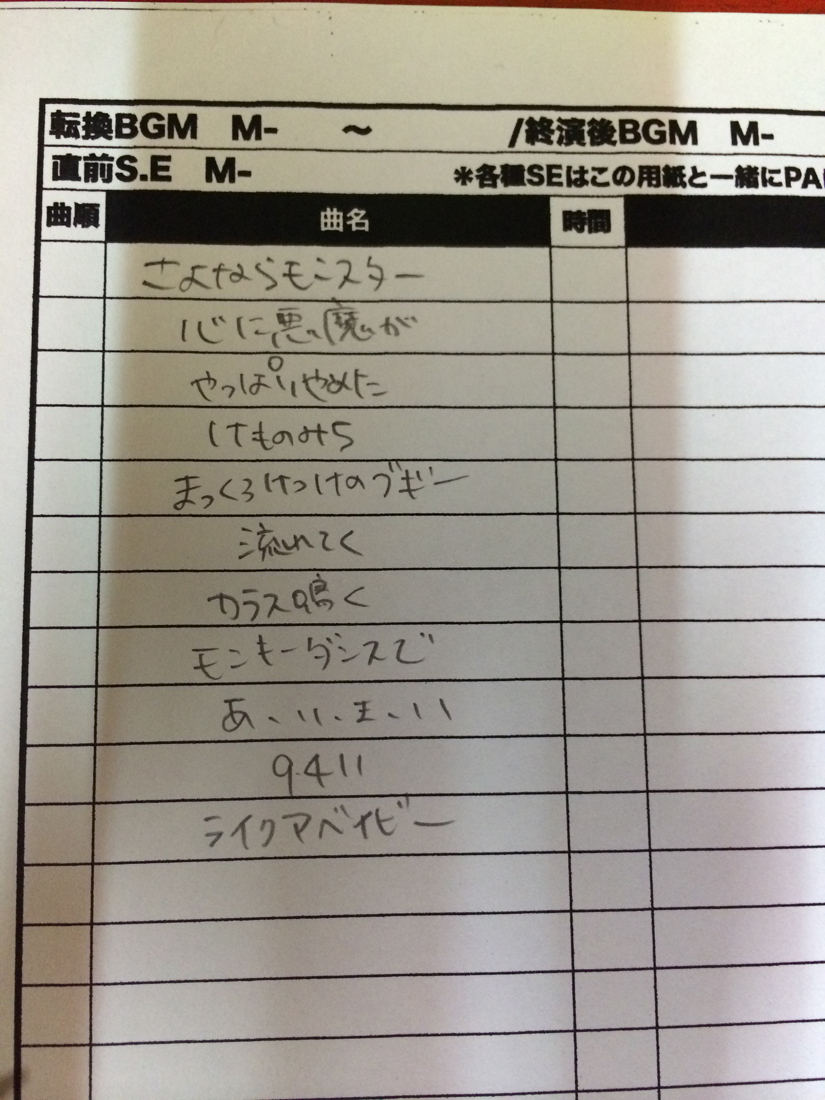 転換BGM M- ～ /終演後BGM M-
直前S.E M- *各種SEはこの用紙と一緒にPA
曲順 曲名 時間
さよならモンスター
心に悪魔が
やっぱりやめた
けものみち
まっくろけっけのブギー
流れてく
カラス鳴く
モンキーダンスで
あ、い、ま、い
9.411
ライクアベイビー